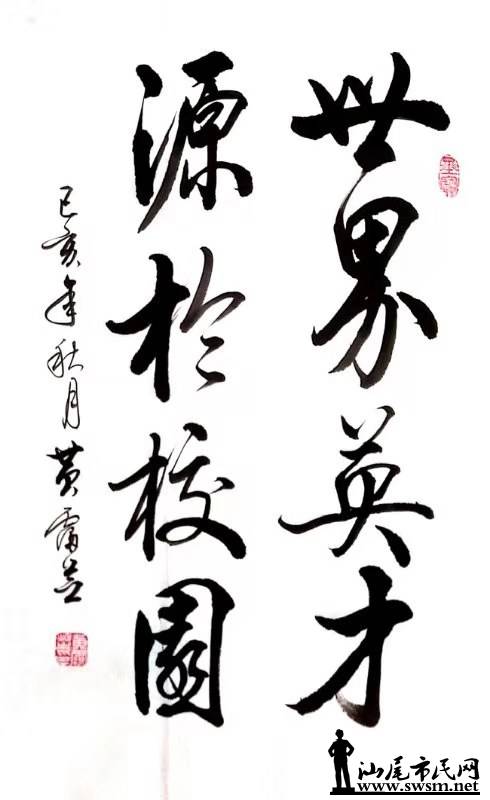 世界英才
源於校園
己亥年秋月 黄
汕尾市民网
www.swsm.net